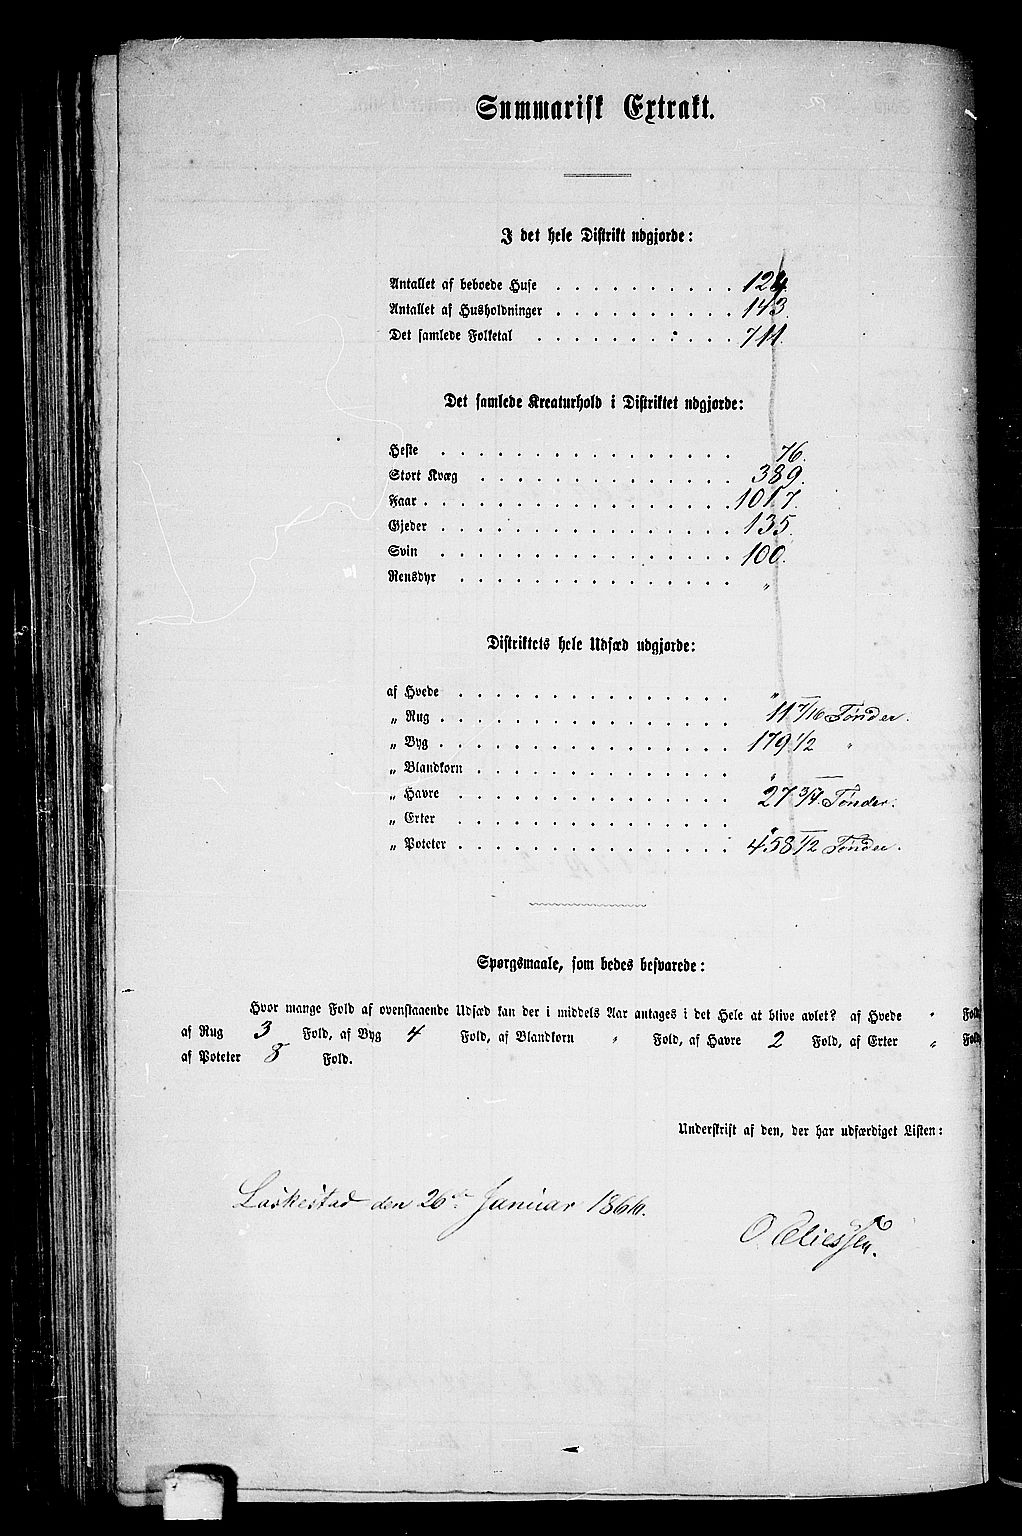 Summarisk Extrakt.
I det hele Distrikt udgjorde:
Antallet af beboede Huse . . . . . . . . . . 124.
Antallet af Husholdninger . . . . . . . . . . 143.
Det samlede Folketal . . . . . . . . . . . 711.
Det samlede Kreaturhold i Distriktet udgjorde:
Heste . . . . . . . . . . . . . . . . 76.
Stort Kvæg . . . . . . . . . . . . . . 389.
Faar . . . . . . . . . . . . . . . . . 1017.
Gjeder . . . . . . . . . . . . . . . . 135.
Svin . . . . . . . . . . . . . . . . 100.
Rensdyr . . . . . . . . . . . . . . . „
Distriktets hele Udsæd udgjorde:
af Hvede . . . . . . . . . . . . . . . "
„ Rug . . . . . . . . . . . . . . . . 11 7/16 Tønder.
„ Byg . . . . . . . . . . . . . . . . 179 1/2 "
„ Blandkorn . . . . . . . . . . . . . . "
„ Havre . . . . . . . . . . . . . . . 27 3/4 Tønder.
„ Erter . . . . . . . . . . . . . . . "
„ Poteter . . . . . . . . . . . . . . . 458 1/2 Tønder.
Spørgsmaale, som bedes besvarede:
Hvor mange Fold af ovenstaaende Udsæd kan der i middels Aar antages i det Hele at blive avlet? af Hvede " Fold
af Rug 3 Fold, af Byg 4 Fold, af Blandkorn " Fold, af Havre 2 Fold, af Erter " Fold,
af Poteter 8 Fold.
Underskrift af den, der har udfærdiget Listen:
Laskestad den 26de Januar 1866.
O. Eliessen.